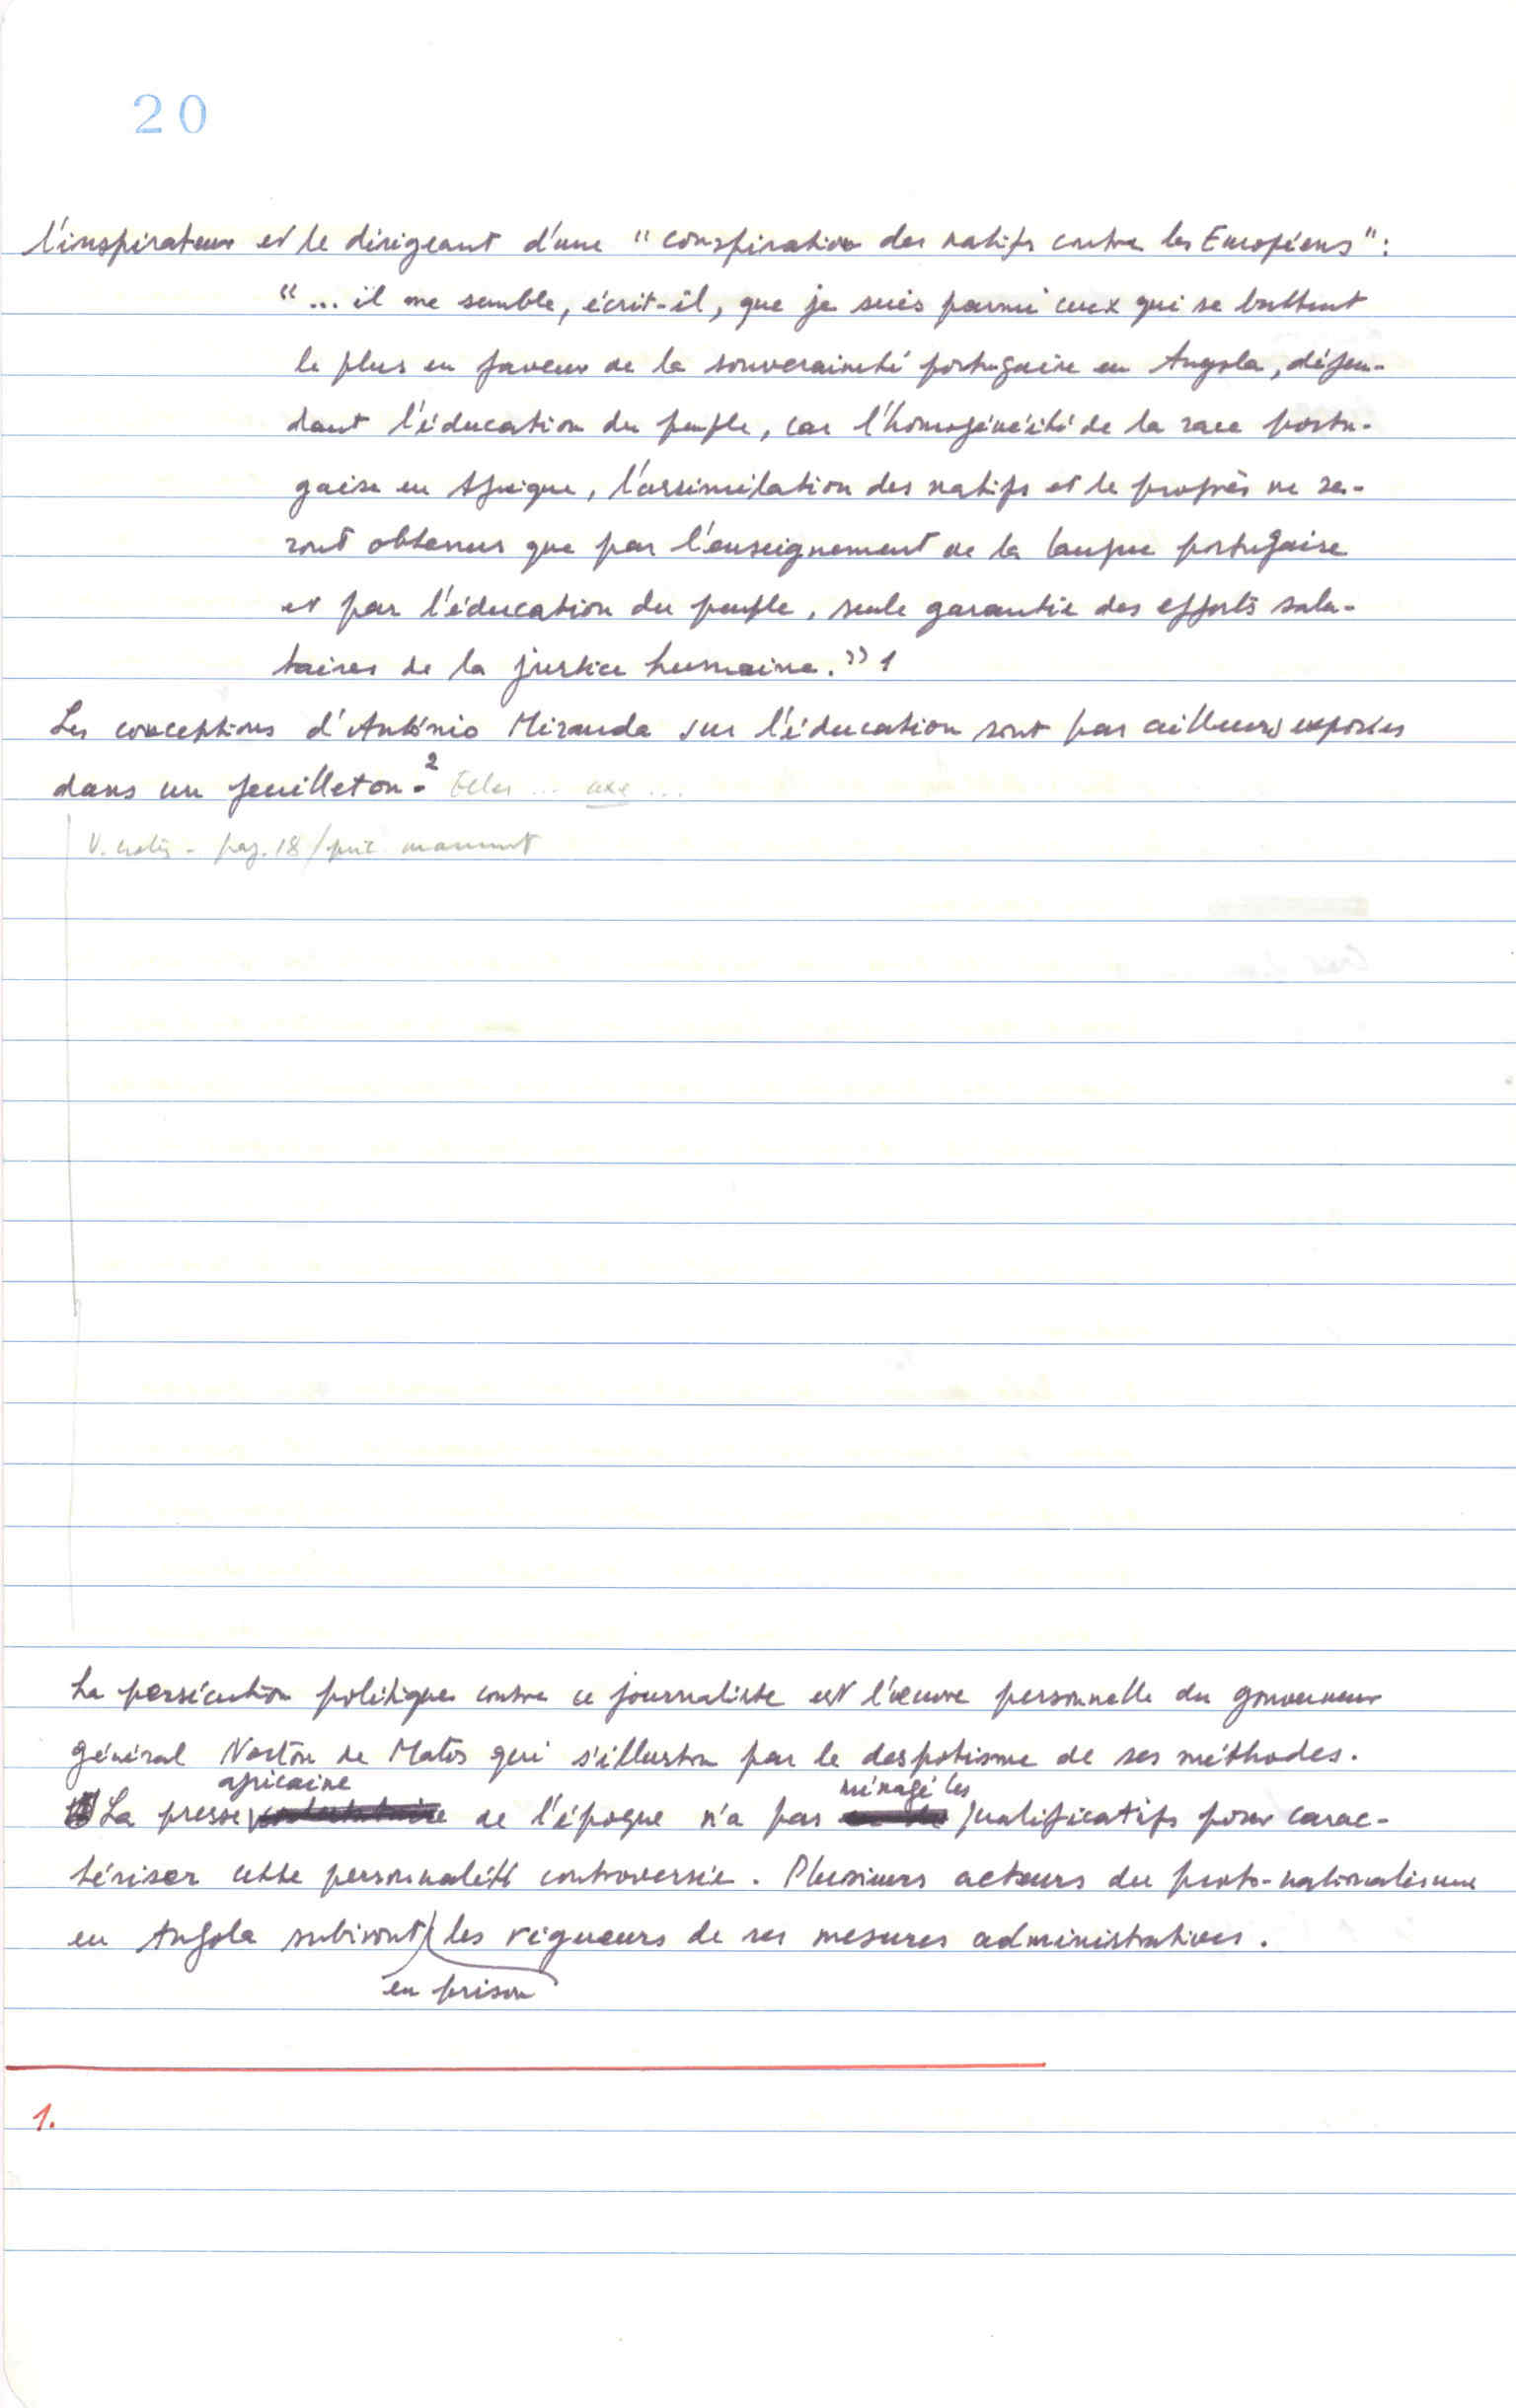 20
l'inspirateur et le dirigeant d'une "conspiration des natifs contre les Européens":
"... il me semble, écrit-il, que je suis parmi ceux qui se battent
le plus en faveur de la souveraineté portugaise en Angola, défen-
dant l'éducation du peuple, car l'homogénéité de la race portu-
gaise en Afrique, l'assimilation des natifs et le progrès ne se-
ront obtenus que par l'enseignement de la langue portugaise
et par l'éducation du peuple, seule garantie des efforts salu-
taires de la justice humaine." 1
Les conceptions d'António Miranda sur l'éducation sont par ailleurs exposées
dans un feuilleton.2 Elles ... axe ...
V. notes - pag. 18/
La persécution politique contre ce journaliste est l'œuvre personnelle du gouverneur
général Norton de Matos qui s'illustra par le despotisme de ses méthodes.
africaine ménagé les
La presse de l'époque n'a pas qualificatifs pour carac-
tériser cette personnalité controversée. Plusieurs acteurs du proto-nationalisme
en Angola subiront les rigueurs de ses mesures administratives.
en prison
1.